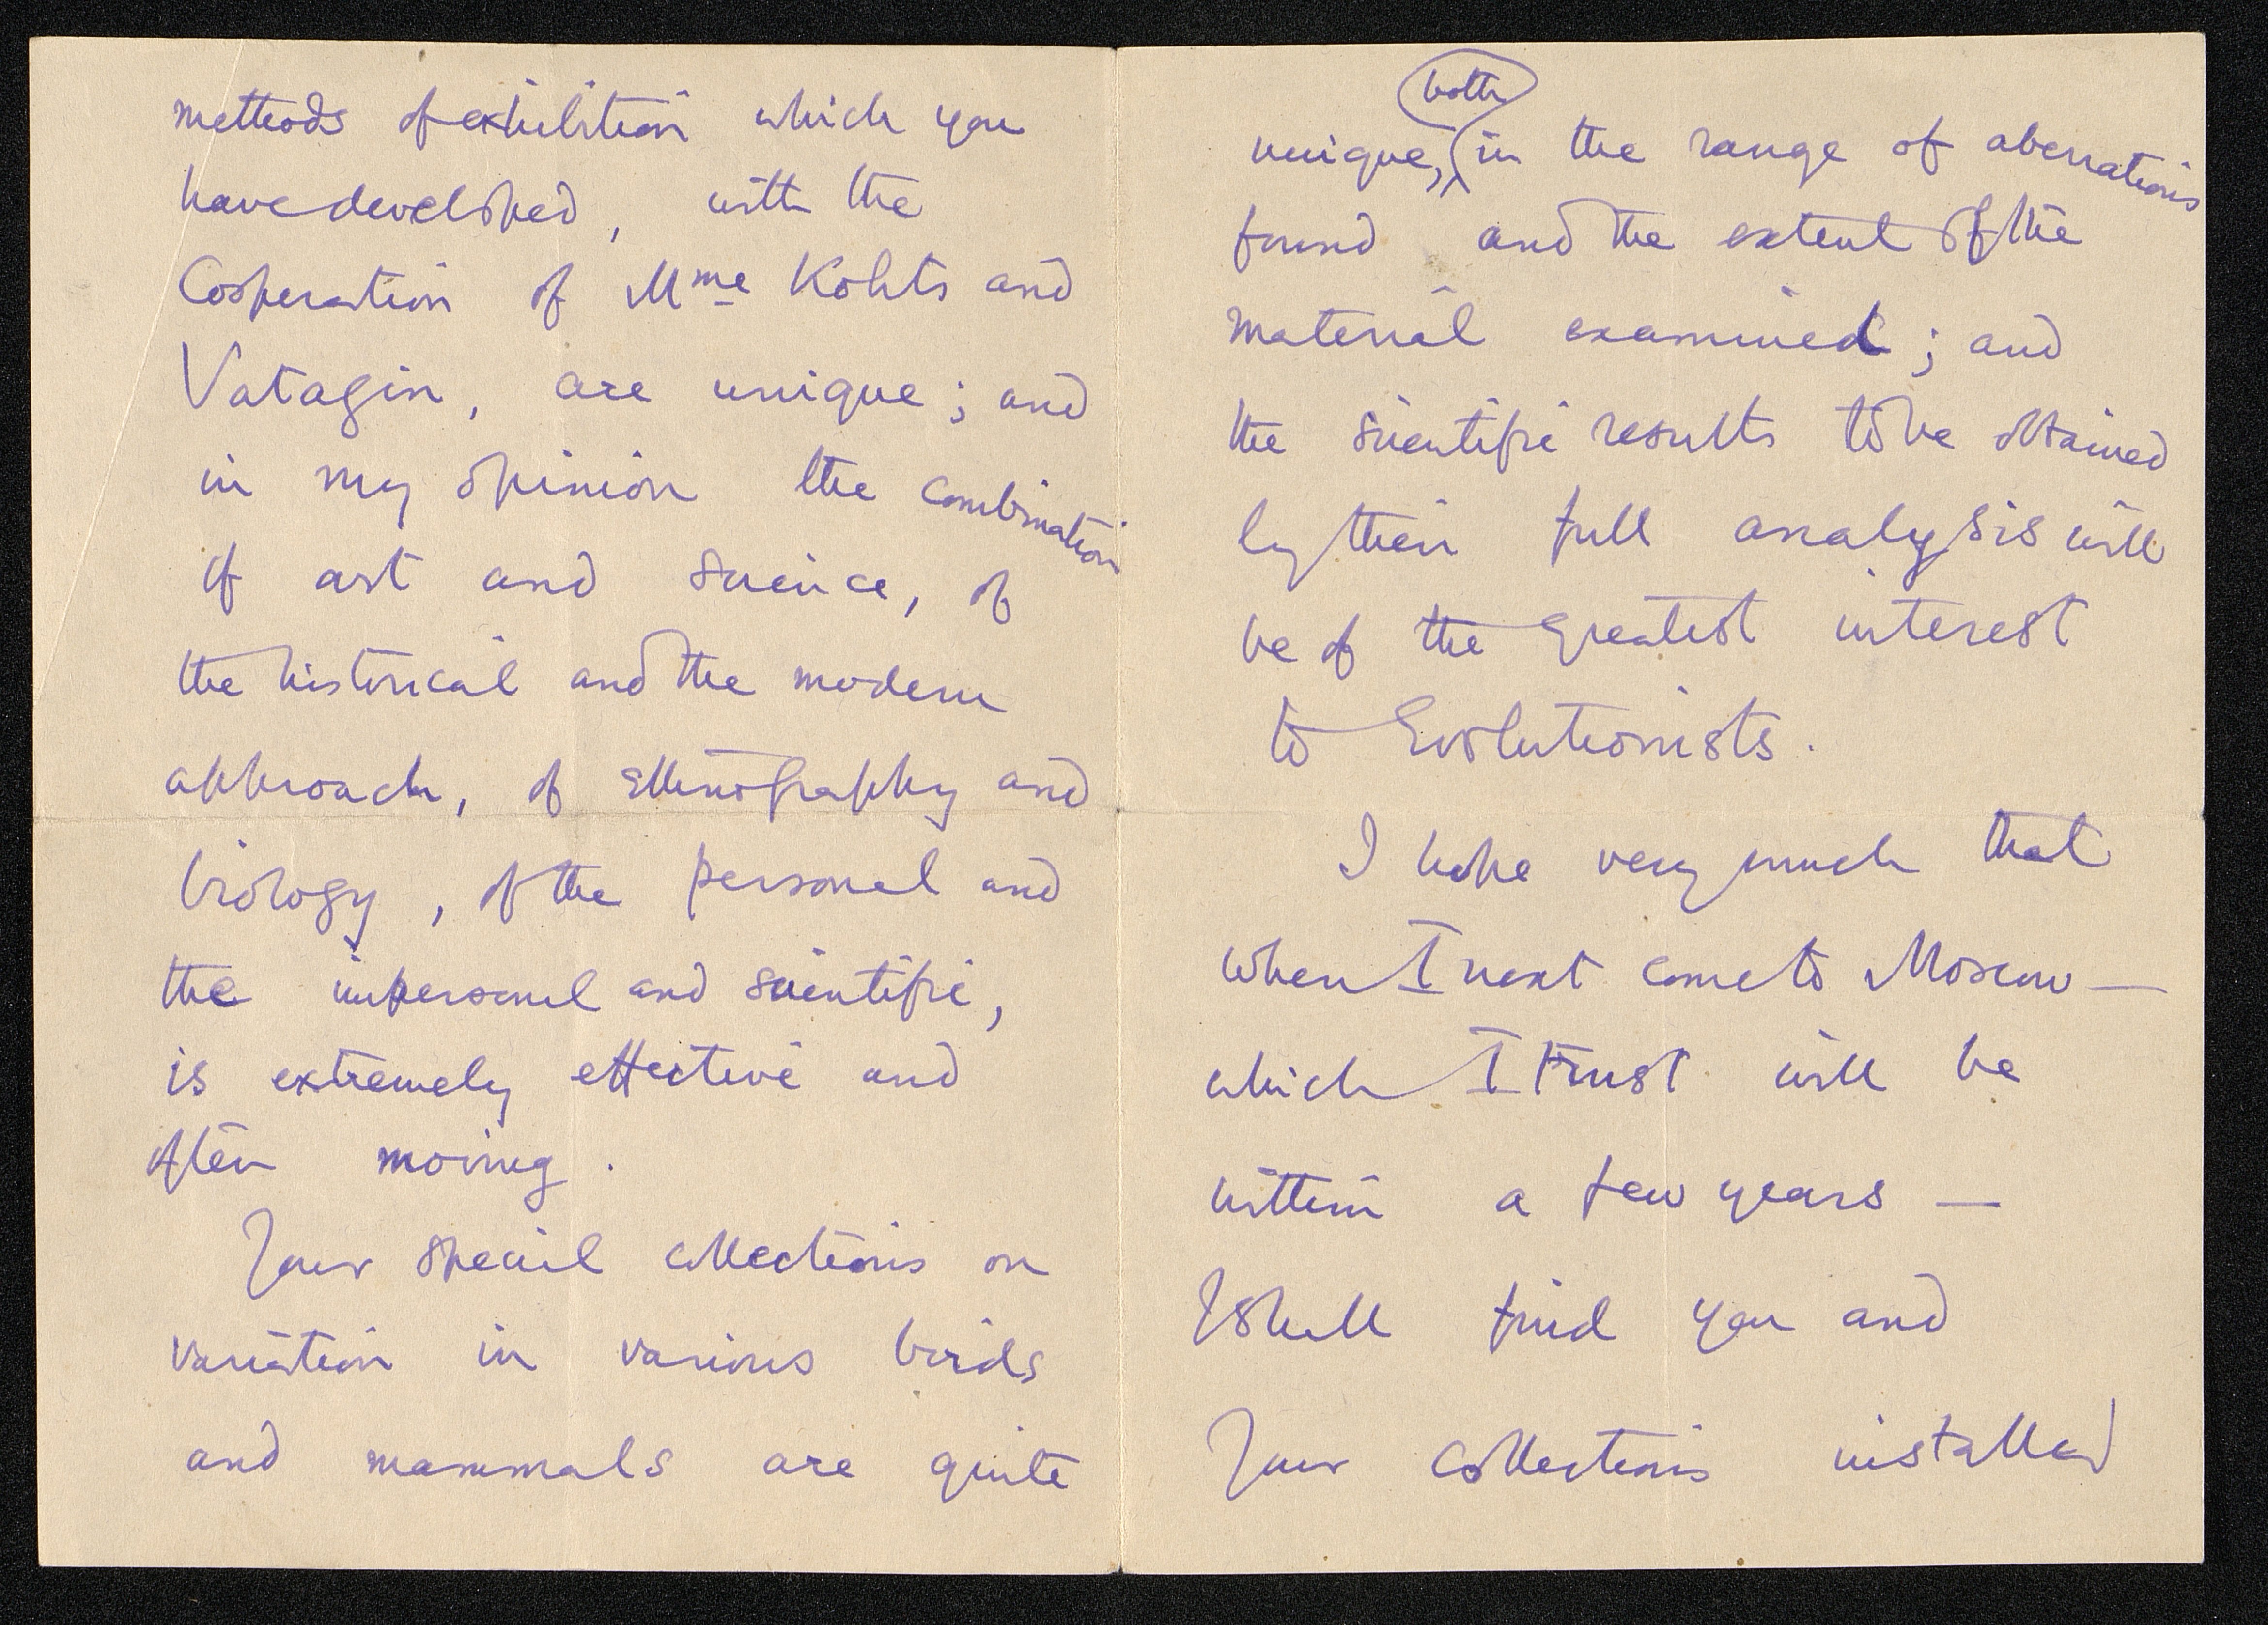 methods of exhibition which you
have developed, with the
Cooperation of Mme Kohts and
Vatagin, are unique; and
in my opinion the combination
of art and science, of
the historical and the modern
approach, of ethnography and
biology, of the personal and
the impersonal and scientific,
is extremely effective and
often moving.
Your special collections on
variation in various birds
and mammals are quite
both
unique, in the range of aberrations
found and the extent of the
material examined; and
the scientific results to be obtained
by their full analysis will
be of the greatest interest
to Evolutionists.
I hope very much that
when I next come to Moscow —
which I trust will be
within a few years —
I shall find you and
your collections installed